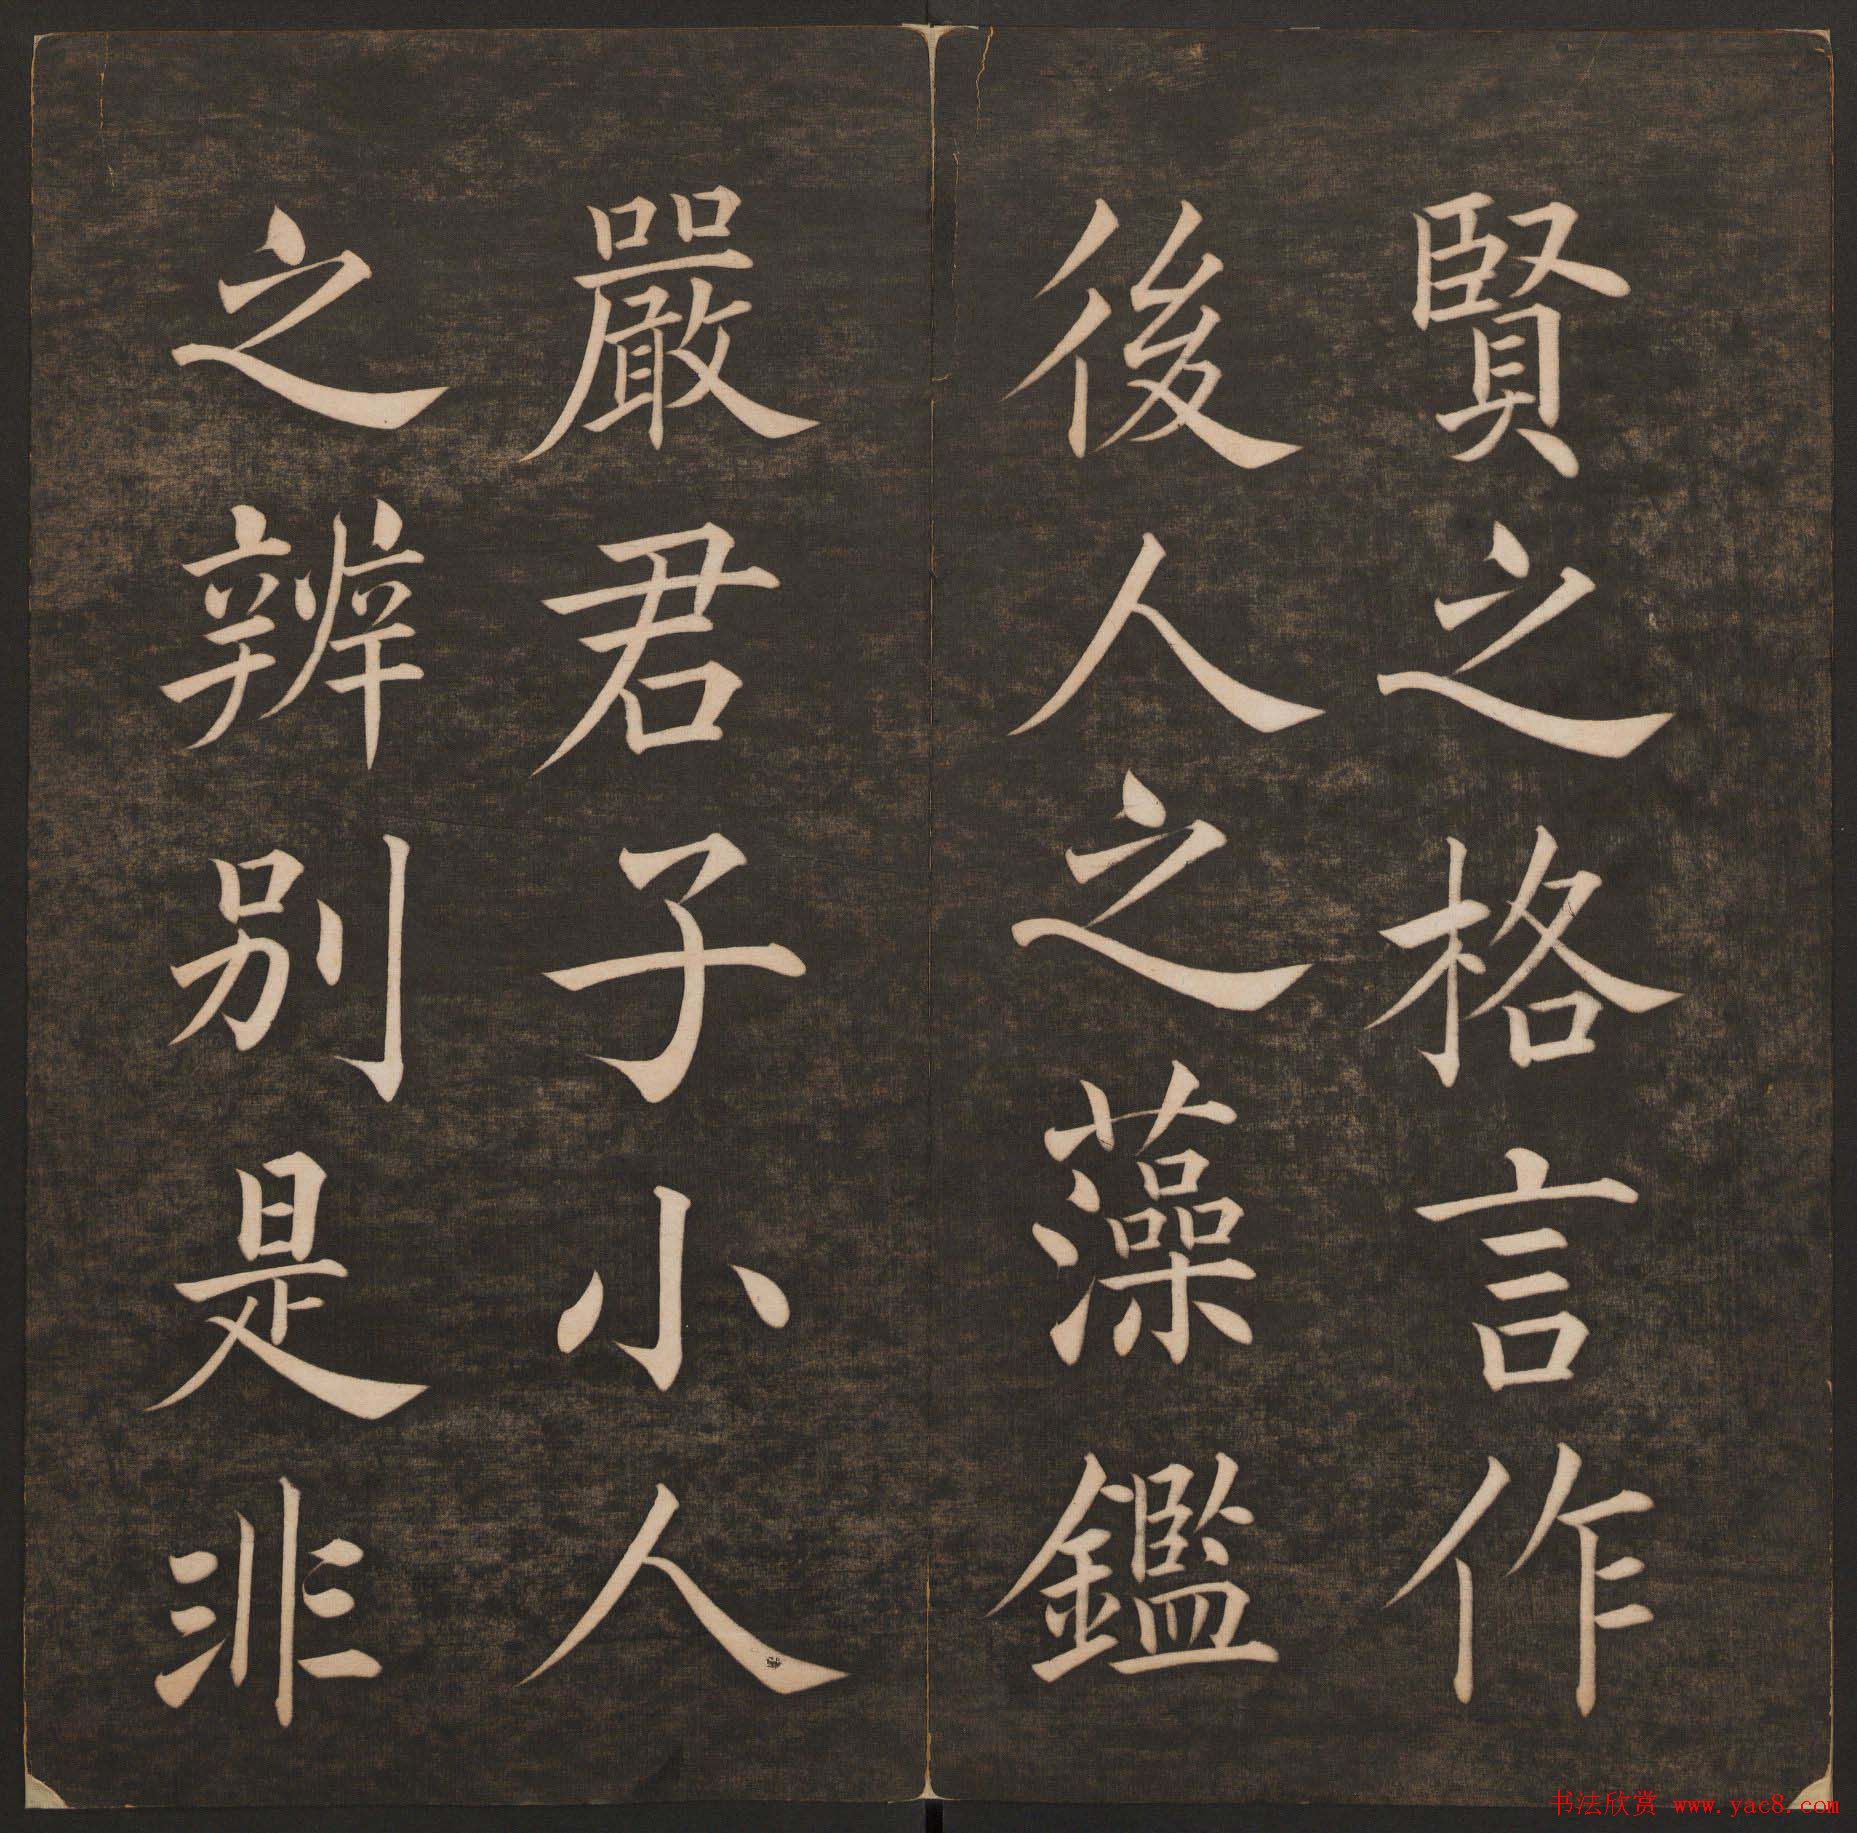 賢之格言作
後人之藻鑑
嚴君子小人
之辨別是非
书法欣赏 www.yac8.com